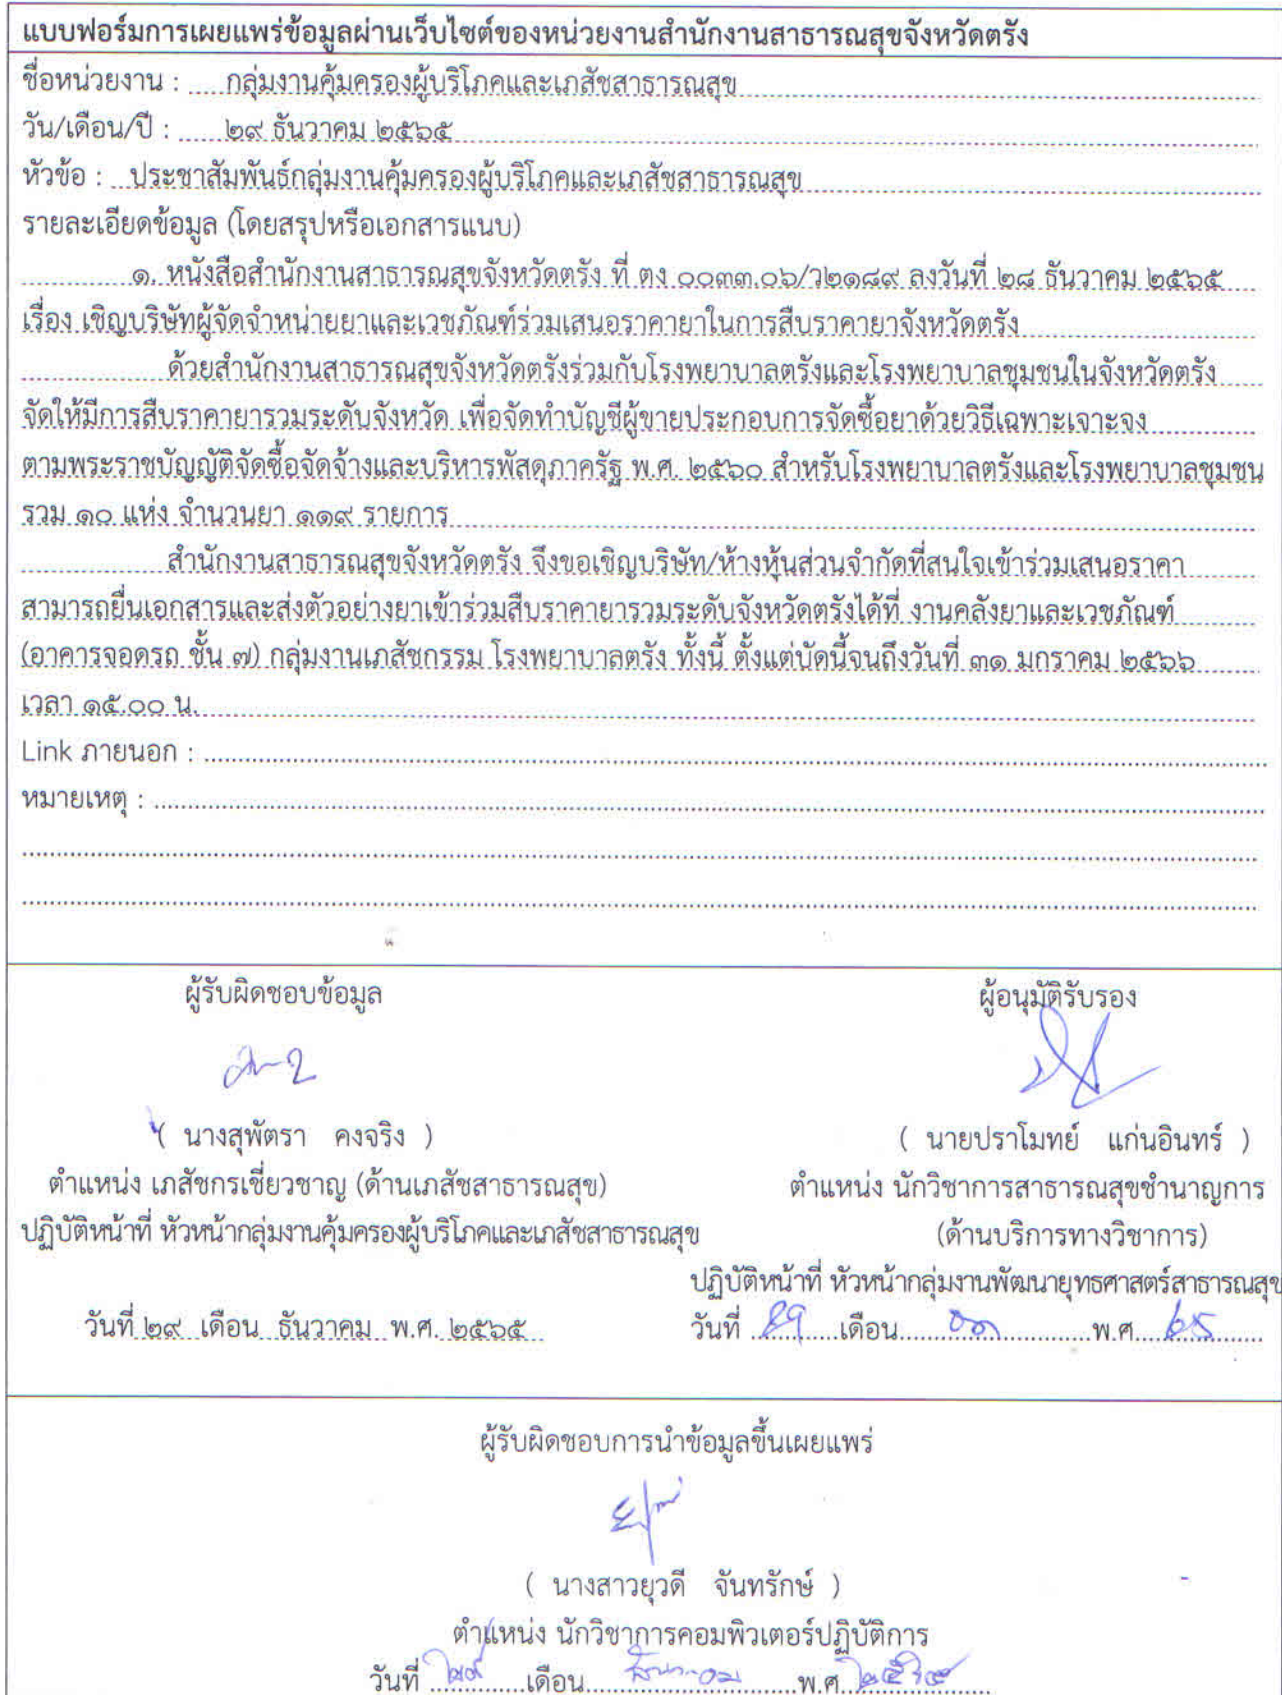 แบบฟอร์มการเผยแพร่ข้อมูลผ่านเว็บไซต์ของหน่วยงานสำนักงานสาธารณสุขจังหวัดตรัง
ชื่อหน่วยงาน : .....กลุ่มงานคุ้มครองผู้บริโภคและเภสัชสาธารณสุข
วัน/เดือน/ปี : ......๒๙ ธันวาคม ๒๕๖๕
หัวข้อ : ...ประชาสัมพันธ์กลุ่มงานคุ้มครองผู้บริโภคและเภสัชสาธารณสุข
รายละเอียดข้อมูล (โดยสรุปหรือเอกสารแนบ)
๑. หนังสือสำนักงานสาธารณสุขจังหวัดตรัง ที่ ตง ๐๐๓๓.๐๖/ว๒๑๘๙ ลงวันที่ ๒๘ ธันวาคม ๒๕๖๕
เรื่อง เชิญบริษัทผู้จัดจำหน่ายยาและเวชภัณฑ์ร่วมเสนอราคายาในการสืบราคายาจังหวัดตรัง
ด้วยสำนักงานสาธารณสุขจังหวัดตรังร่วมกับโรงพยาบาลตรังและโรงพยาบาลชุมชนในจังหวัดตรัง
จัดให้มีการสืบราคายารวมระดับจังหวัด เพื่อจัดทำบัญชีผู้ขายประกอบการจัดซื้อยาด้วยวิธีเฉพาะเจาะจง
ตามพระราชบัญญัติจัดซื้อจัดจ้างและบริหารพัสดุภาครัฐ พ.ศ. ๒๕๖๐ สำหรับโรงพยาบาลตรังและโรงพยาบาลชุมชน
รวม ๑๐ แห่ง จำนวนยา ๑๑๙ รายการ
สำนักงานสาธารณสุขจังหวัดตรัง จึงขอเชิญบริษัท/ห้างหุ้นส่วนจำกัดที่สนใจเข้าร่วมเสนอราคา
สามารถยื่นเอกสารและส่งตัวอย่างยาเข้าร่วมสืบราคายารวมระดับจังหวัดตรังได้ที่ งานคลังยาและเวชภัณฑ์
(อาคารจอดรถ ชั้น ๗) กลุ่มงานเภสัชกรรม โรงพยาบาลตรัง ทั้งนี้ ตั้งแต่บัดนี้จนถึงวันที่ ๓๑ มกราคม ๒๕๖๖
เวลา ๑๕.๐๐ น.
Link ภายนอก :
หมายเหตุ :
ผู้รับผิดชอบข้อมูล ผู้อนุมัติรับรอง
( นางสุพัตรา คงจริง ) ( นายปราโมทย์ แก่นอินทร์ )
ตำแหน่ง เภสัชกรเชี่ยวชาญ (ด้านเภสัชสาธารณสุข) ตำแหน่ง นักวิชาการสาธารณสุขชำนาญการ
ปฏิบัติหน้าที่ หัวหน้ากลุ่มงานคุ้มครองผู้บริโภคและเภสัชสาธารณสุข (ด้านบริการทางวิชาการ)
ปฏิบัติหน้าที่ หัวหน้ากลุ่มงานพัฒนายุทธศาสตร์สาธารณสุข
วันที่ ๒๙ เดือน ธันวาคม พ.ศ. ๒๕๖๕ วันที่ ๒๙ เดือน ธค พ.ศ. ๖๕
ผู้รับผิดชอบการนำข้อมูลขึ้นเผยแพร่
( นางสาวยุวดี จันทรักษ์ )
ตำแหน่ง นักวิชาการคอมพิวเตอร์ปฏิบัติการ
วันที่ ๒๙ เดือน ธันวาคม พ.ศ. ๒๕๖๕